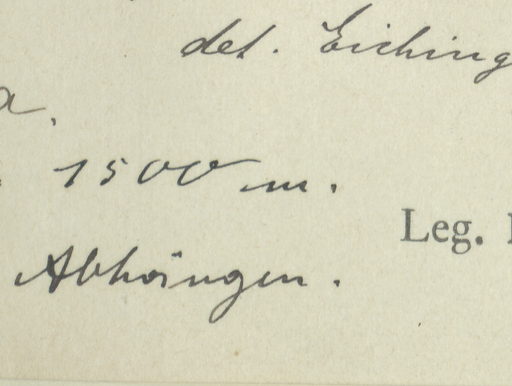 det. Eiching
a.
1500 m.
Leg.
Abhängen.